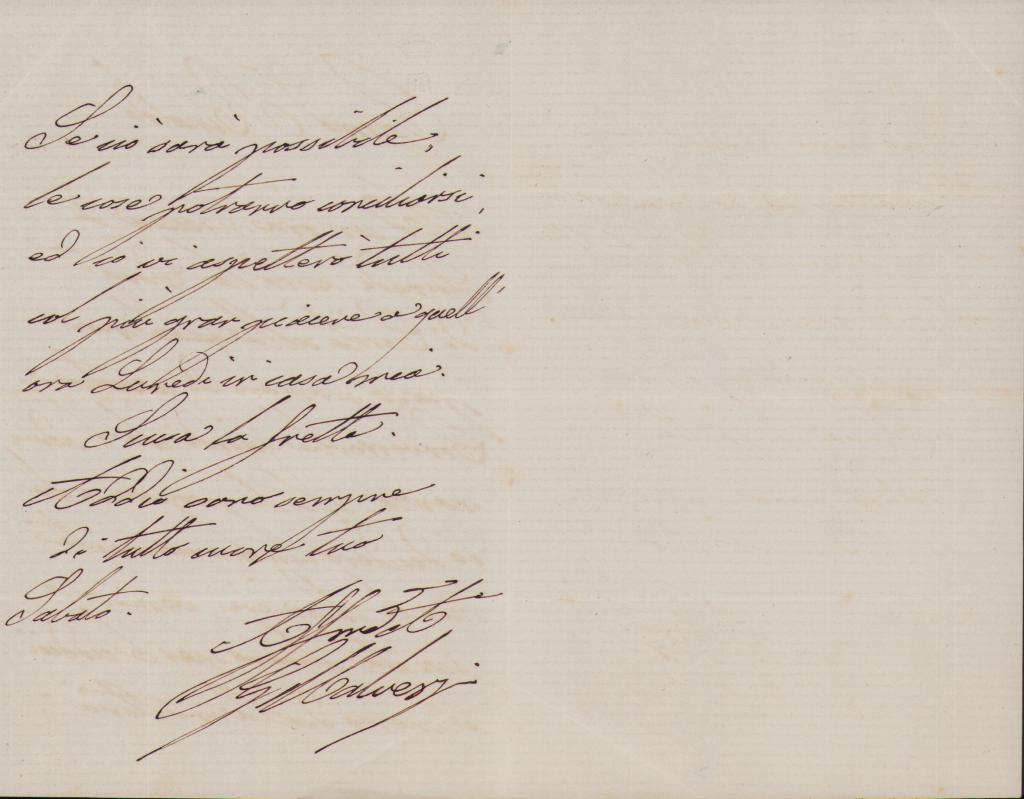 Se ciò sarà possibile,
le cose potranno conciliarsi,
ed io vi aspetterò tutti
col più gran piacere a quell'
ora Lunedì in casa mia.
Scusa la fretta.
Addio sono sempre
di tutto cuore tuo
Sabato.